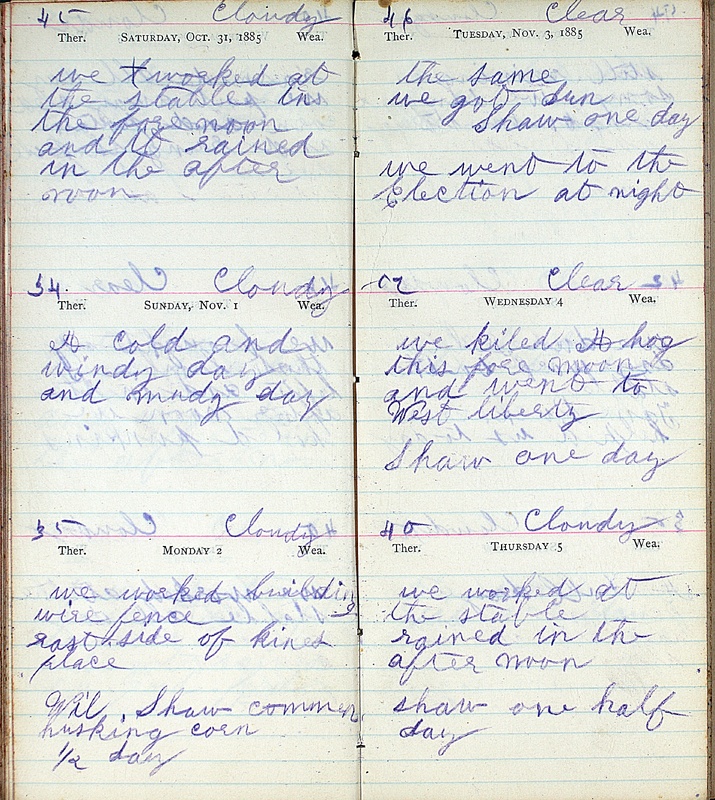 45 Cloudy
Ther. SATURDAY, OCT. 31, 1885 Wea.
we worked at
the stables in
the fore noon
and it rained
in the after
noon
34 Cloudy
Ther. SUNDAY, NOV. 1 Wea.
A cold and
windy day
and mudy day
35 Cloudy
Ther. MONDAY 2 Wea.
we worked buildin
g
wire fence
east side of kines
place
Wil. Shaw commen
husking corn
1/2 day
46 Clear
Ther. TUESDAY, NOV. 3, 1885 Wea.
the same
we got Sun
Shaw one day
we went to the
Election at night
Clear
Ther. WEDNESDAY 4 Wea.
we kiled A hog
this fore noon
and went to
West liberty
Shaw one day
40 Cloudy
Ther. THURSDAY 5 Wea.
we worked at
the stable
rained in the
after noon
shaw one half
day